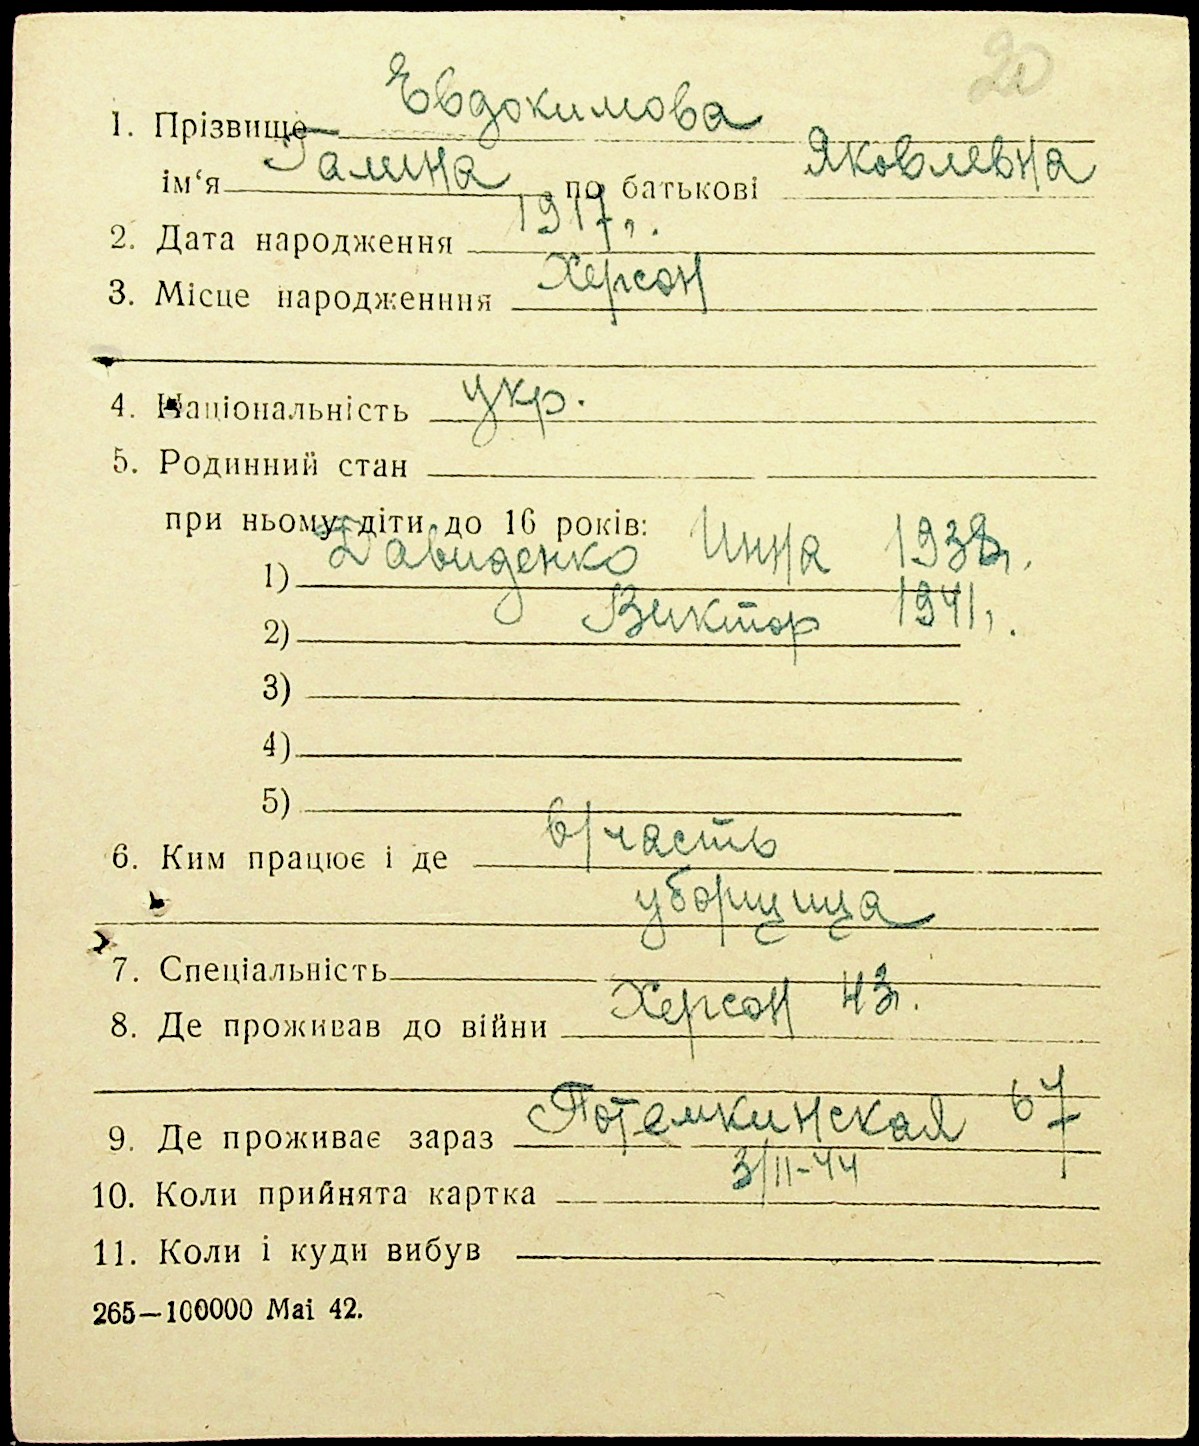 20
1. Прізвище Евдокимова
ім‘я Галина по батькові Яковлевна
2. Дата народження 1917 г.
3. Місце народженння Херсон
4. Національність укр.
5. Родинний стан
при ньому діти до 16 років:
1) Давиденко Инна 1938 г.
2) Виктор 1941 г.
3)
4)
5)
6. Ким працює і де в/часть
уборщица
7. Спеціальність
8. Де проживав до війни Херсон 43 г.
9. Де проживає зараз Потемкинская 67
10. Коли прийнята картка 3/II-44
11. Коли і куди вибув
265—100000 Mai 42.